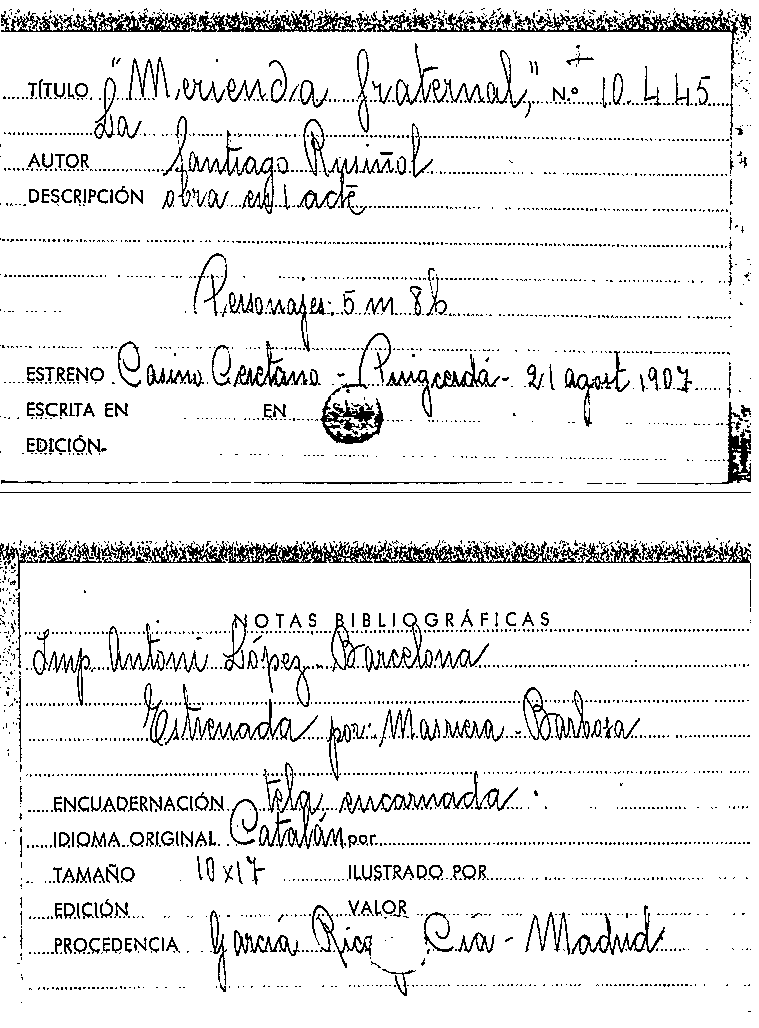 TÍTULO "Merienda fraternal," N.º 10.445
La
AUTOR Santiago Rusiñol
DESCRIPCIÓN obra en 1 acte
Personajes: 5 m 8h
ESTRENO Casino Ceretano - Puigcerdá - 21 agost 1907
ESCRITA EN EN
EDICIÓN
NOTAS BIBLIOGRÁFICAS
Imp. Antoni López - Barcelona
Estrenada por: Marriera - Barbosa
ENCUADERNACIÓN tela encarnada.
IDIOMA ORIGINAL Catalán por
TAMAÑO 10x17 ILUSTRADO POR
EDICIÓN VALOR
PROCEDENCIA García Rico Cía - Madrid